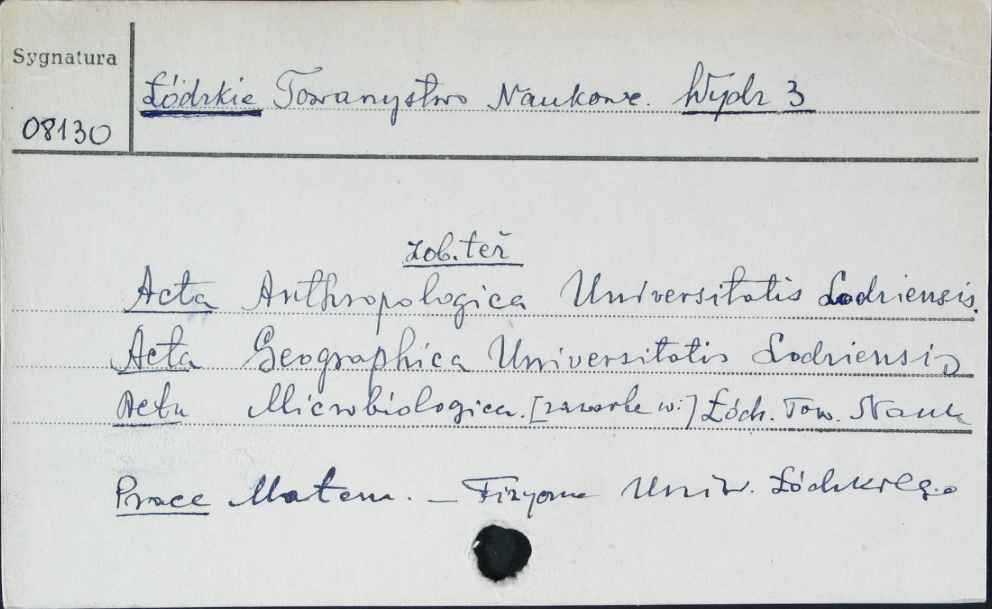 Sygnatura
Łódzkie Towarzystwo Naukowe. Wydz 3
08130
zob. też
Acta Anthropologica Universitatis Lodziensis.
Acta Geographica Universitatis Lodziensis
Acta Microbiologica. [zawarte w:] Łódz. Tow. Nauk
Prace Matem. – Fizyczne Uniw. Łódzkiego